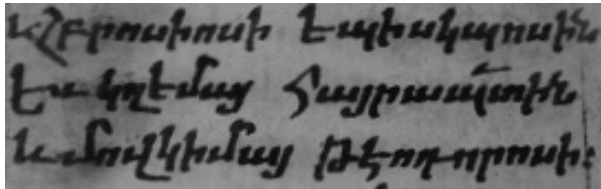 եպիսկապոսին
Եւ կղէմայ Հայրապետին
և մովկիմայ թէոդորոսի։